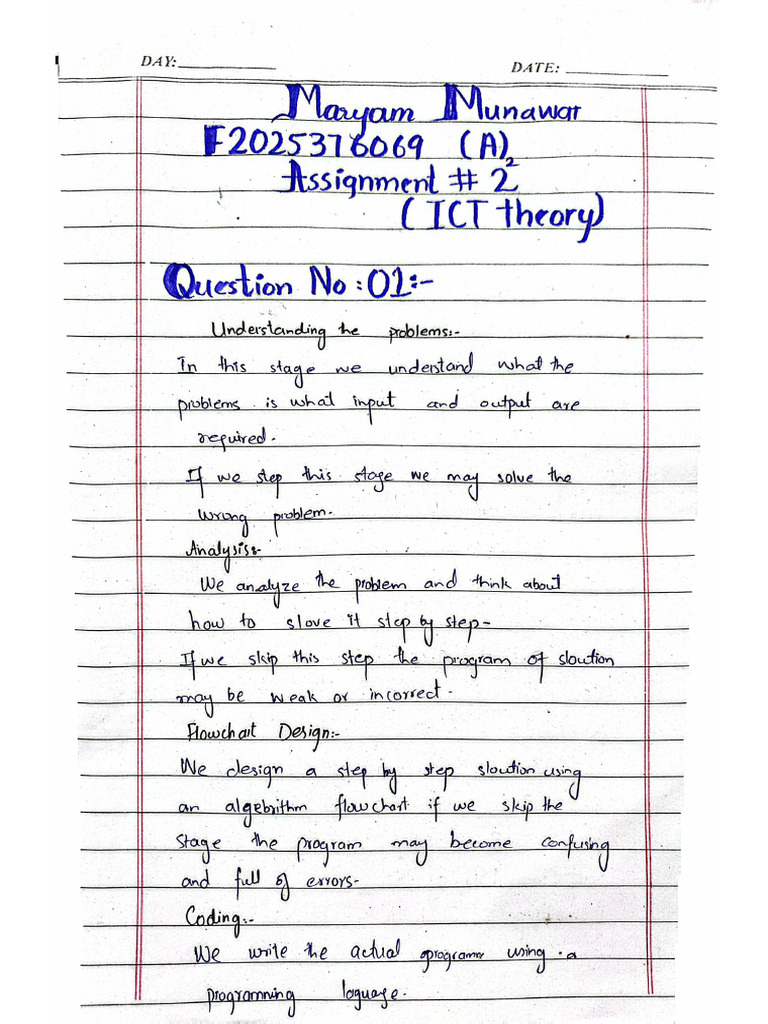 DAY:
DATE:
Maryam Munawar
F2025376069 (A)2
Assignment # 2
(ICT theory)
Question No : 01:-
Understanding the problems:-
In this stage we understand what the
problems is what input and output are
required.
If we step this stage we may solve the
wrong problem.
Analysis:-
We analyze the problem and think about
how to slove it step by step-
If we skip this step the program of sloution
may be weak or incorrect.
Flowchart Design:-
We design a step by step sloution using
an algebrithm flowchart if we skip the
stage the program may become confusing
and full of errors-
Coding:-
We write the actual programm using a
programming loguage.